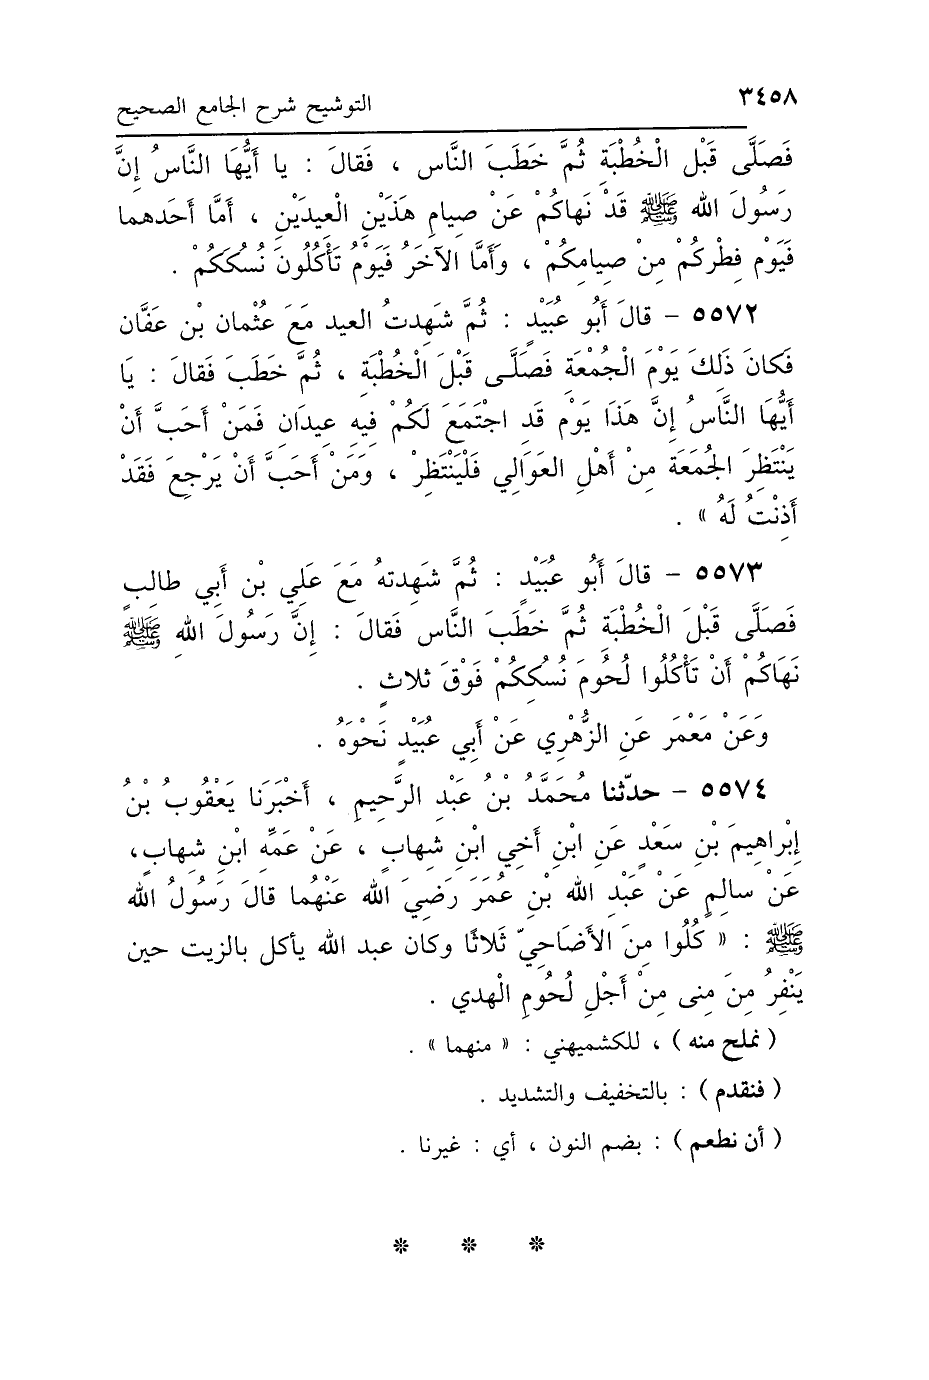 ٣٤٥٨
التوشيح شرح الجامع الصحيح
فَصَلَّى قَبْلِ الْخُطْبَةِ ثُمَّ خَطَبَ النَّاس ، فَقالَ : يا أَيُّهَا النَّاسُ إنَّ
رَسُولَ الله ﷺ قَدْ نَهاكُمْ عَنْ صيامِ هَذَيْنِ الْعِيدَيْنِ ، أَمَّا أَحَدهما
فَيَوْم فِطْرِكُمْ مِنْ صِيامِكُمْ ، وَأَمَّا الآخَرُ فَيَوْمُ تَأْكُلُونَ نُسُكَكُمْ .
٥٥٧٢ - قالَ أَبُو عُبَيْدٍ : ثُمَّ شَهِدتُ العيد مَعَ عُثْمان بْن عَفَّان
فَكانَ ذَلِكَ يَوْمَ الْجُمْعَةِ فَصَلَّى قَبْلَ الْخُطْبَةِ ، ثُمَّ خَطَبَ فَقالَ : يَا
أَيُّهَا النَّاسُ إنَّ هَذَا يَوْم قَدِ اجْتَمَعَ لَكُمْ فِيهِ عِيدَانِ فَمَنْ أَحَبَّ أَنْ
يَنْتَظِرَ الجُمَعَة مِنْ أَهْلِ العَوَالِي فَلْيَنْتَظِرْ ، وَمَنْ أَحَبَّ أَنْ يَرْجِعَ فَقَدْ
أَذِنْتُ لَهُ » .
٥٥٧٣ - قالَ أَبُو عُبَيْدٍ : ثُمَّ شَهِدتهُ مَعَ عَلِي بْن أَبي طالِبٍ
فَصَلَّى قَبْلَ الْخُطْبَةِ ثُمَّ خَطَبَ النَّاس فَقالَ : إِنَّ رَسُولَ اللهِ ﷺ
نَهَاكُمْ أَنْ تَأْكُلُوا لُحُومَ نُسُكِكُمْ فَوْقَ ثلاثٍ .
وَعَنْ مَعْمَر عَنِ الزُّهْرِي عَنْ أَبي عُبَيْدٍ نَحْوَهُ .
٥٥٧٤ - حدّثنا مُحَمَّدُ بْنُ عَبْدِ الرَّحِيمِ ، أَخْبَرَنَا يَعْقُوبُ بْنُ
إِبْراهِيمَ بْنِ سَعْدٍ عَنِ ابْنِ أَخِي ابْنِ شهابٍ ، عَنْ عَمِّهِ ابْنِ شهابٍ،
عَنْ سالِمٍ عَنْ عَبْدِ الله بْنِ عُمَرَ رَضِيَ الله عَنْهُما قالَ رَسُولُ الله
ﷺ : « كُلُوا مِنَ الأَضَاحِيّ ثَلاثًا وكان عبد الله يأكل بالزيت حين
يَنْفِرُ مِنَ مِنى مِنْ أَجْلِ لُحُومِ الْهدي .
( نملح منه ) ، للكشميهني : « منهما » .
( فنقدم ) : بالتخفيف والتشديد .
( أن نطعم ) : بضم النون ، أي : غيرنا .
* * *